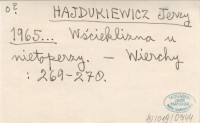 HAJDUKIEWICZ Jerzy
1965... Wścieklizna u
nietoperzy. – Wierchy
: 269-270.